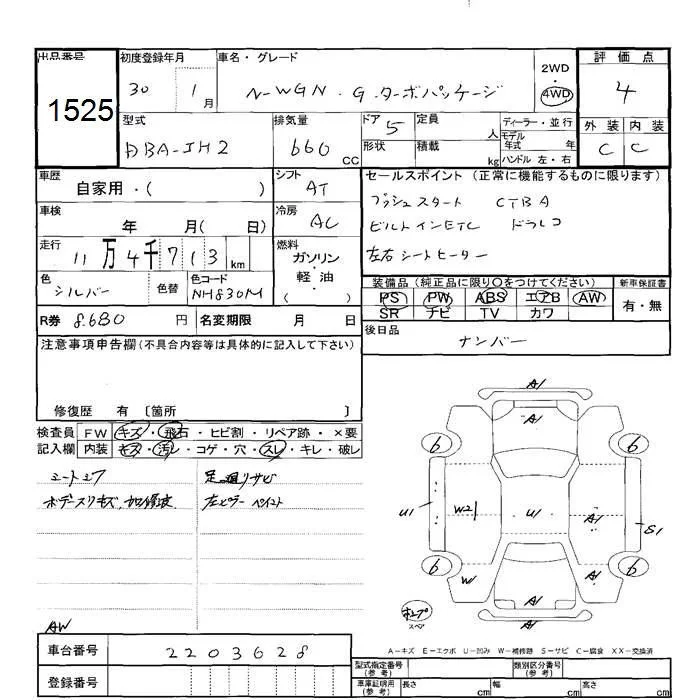 出品番号 初度登録年月 車名・グレード 2WD 評価点
1525 30 1月 N-WGN・G・ターボパッケージ 4WD 4
型式 排気量 ドア 5 定員 人 ディーラー・並行 外装 内装
DBA-JH2 660 CC 形状 積載 kg モデル年式 年 C C
ハンドル 左・右
車歴 自家用・( ) シフト AT セールスポイント (正常に機能するものに限ります)
プッシュスタート CTBA
車検 年 月( 日) 冷房 AC ビルトインETC ドラレコ
走行 11万4千713km 燃料 ガソリン・軽油・( ) 左右シートヒーター
色 シルバー 色替 色コード NH830M 装備品 (純正品に限り○をつけてください) 新車保証書
PS PW ABS エアB AW 有・無
SR ナビ TV カワ
R券 8.680 円 名変期限 月 日 後日品 ナンバー
注意事項申告欄 (不具合内容等は具体的に記入して下さい)
修復歴 有 〔箇所 〕
検査員 FW キズ・飛石・ヒビ割・リペア跡・×要
記入欄 内装 キズ・汚レ・コゲ・穴・スレ・キレ・破レ
シートシワ 足廻リサビ
ボデースリキズ、加修波 左ピラーペイント
A1
A1
6 6
U1 W2 U1 A1 S1
6 6
W A1
A1
スペア
AW
A-キズ E-エクボ U-凹み W-補修跡 S-サビ C-腐食 XX-交換済
車台番号 2203628 型式指定番号 (参考) 類別区分番号 (参考)
登録番号 車庫証明用 (参考) 長さ cm 幅 cm 高さ cm